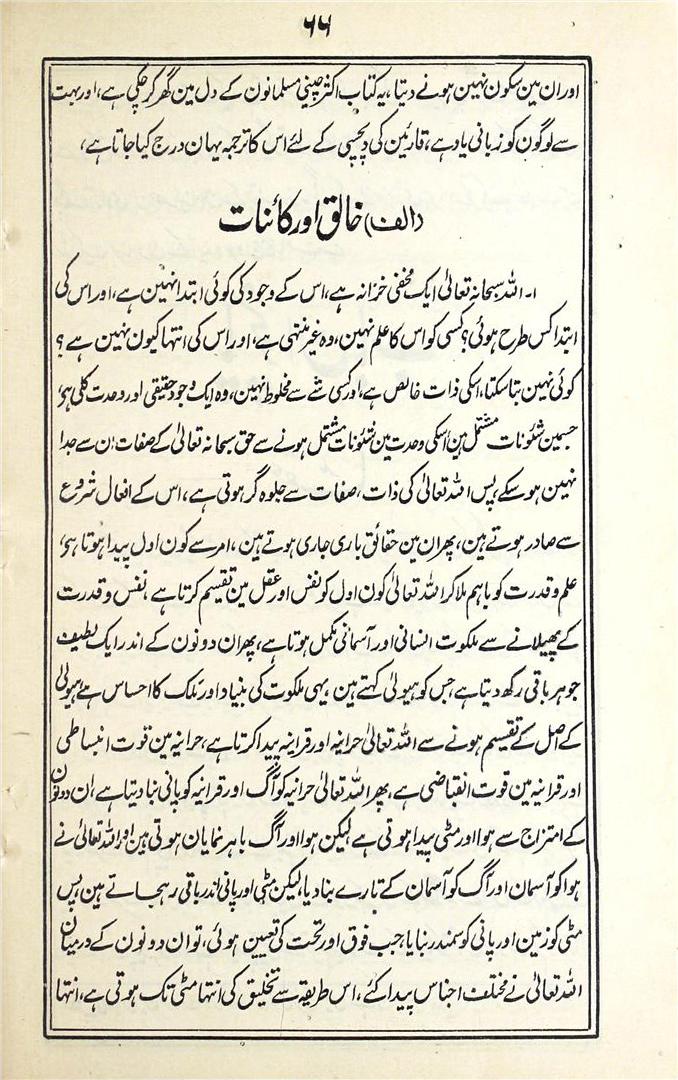 ۶۶
اور ان مین سکون نہین ہونے دیتا، یہ کتاب اکثر چینی مسلمانون کے دل مین گھر کر چکی ہے، اور بہت
سے لوگون کو زبانی یاد ہے، قارئین کی دلچسپی کے لئے اس کا ترجمہ یہان درج کیا جاتا ہے،
(الف) خالق اور کائنات
۱۔ اللہ سبحانہ تعالیٰ ایک مخفی خزانہ ہے، اس کے وجود کی کوئی ابتدا نہین ہے، اور اس کی
ابتدا کس طرح ہوئی؟ کسی کو اس کا علم نہین، وہ غیر منتہی ہے، اور اس کی انتہا کیون نہین ہے؟
کوئی نہین بتا سکتا، اسکی ذات خالص ہے، اور کسی شے سے مخلوط نہین، وہ ایک وجود حقیقی اور وحدت کلی ہے،
جسمین شئونات مشتمل ہین اسکی وحدت مین شئونات مشتمل ہونے سے حق سبحانہ تعالیٰ کے صفات ان سے جدا
نہین ہو سکے، پس اللہ تعالیٰ کی ذات، صفات سے جلوہ گر ہوتی ہے، اس کے افعال شروع
سے صادر ہوتے ہین، پھر ان مین حقائق باری جاری ہوتے ہین، امر سے کون اول پیدا ہوتا ہے،
علم و قدرت کو باہم ملا کر اللہ تعالیٰ کون اول کو نفس اور عقل مین تقسیم کرتا ہے، نفس و قدرت
کے پھیلانے سے ملکوت انسانی اور آسمانی مکمل ہوتا ہے، پھر ان دونون کے اندر ایک لطیف
جوہر باقی رکھ دیتا ہے، جس کو ہیولیٰ کہتے ہین، یہی ملکوت کی بنیاد اور ملک کا احساس ہے، ہیولیٰ
کے اصل کے تقسیم ہونے سے اللہ تعالیٰ حرانیہ اور قرانیہ پیدا کرتا ہے، حرانیہ مین قوت انبساطی
اور قرانیہ مین قوت انقباضی ہے، پھر اللہ تعالیٰ حرانیہ کو آگ اور قرانیہ کو پانی بنا دیتا ہے، ان دونون
کے امتزاج سے ہوا اور مٹی پیدا ہوتی ہے لیکن ہوا اور آگ باہر نمایان ہوتی ہین اور اللہ تعالیٰ نے
ہوا کو آسمان اور آگ کو آسمان کے تارے بنا دیا، لیکن مٹی اور پانی اندر باقی رہجاتے ہین پس
مٹی کو زمین اور پانی کو سمندر بنایا، جب فوق اور تحت کی تعیین ہوئی، تو ان دونون کے درمیان
اللہ تعالیٰ نے مختلف اجناس پیدا کئے، اس طریقہ سے تخلیق کی انتہا مٹی تک ہوتی ہے، انتہا